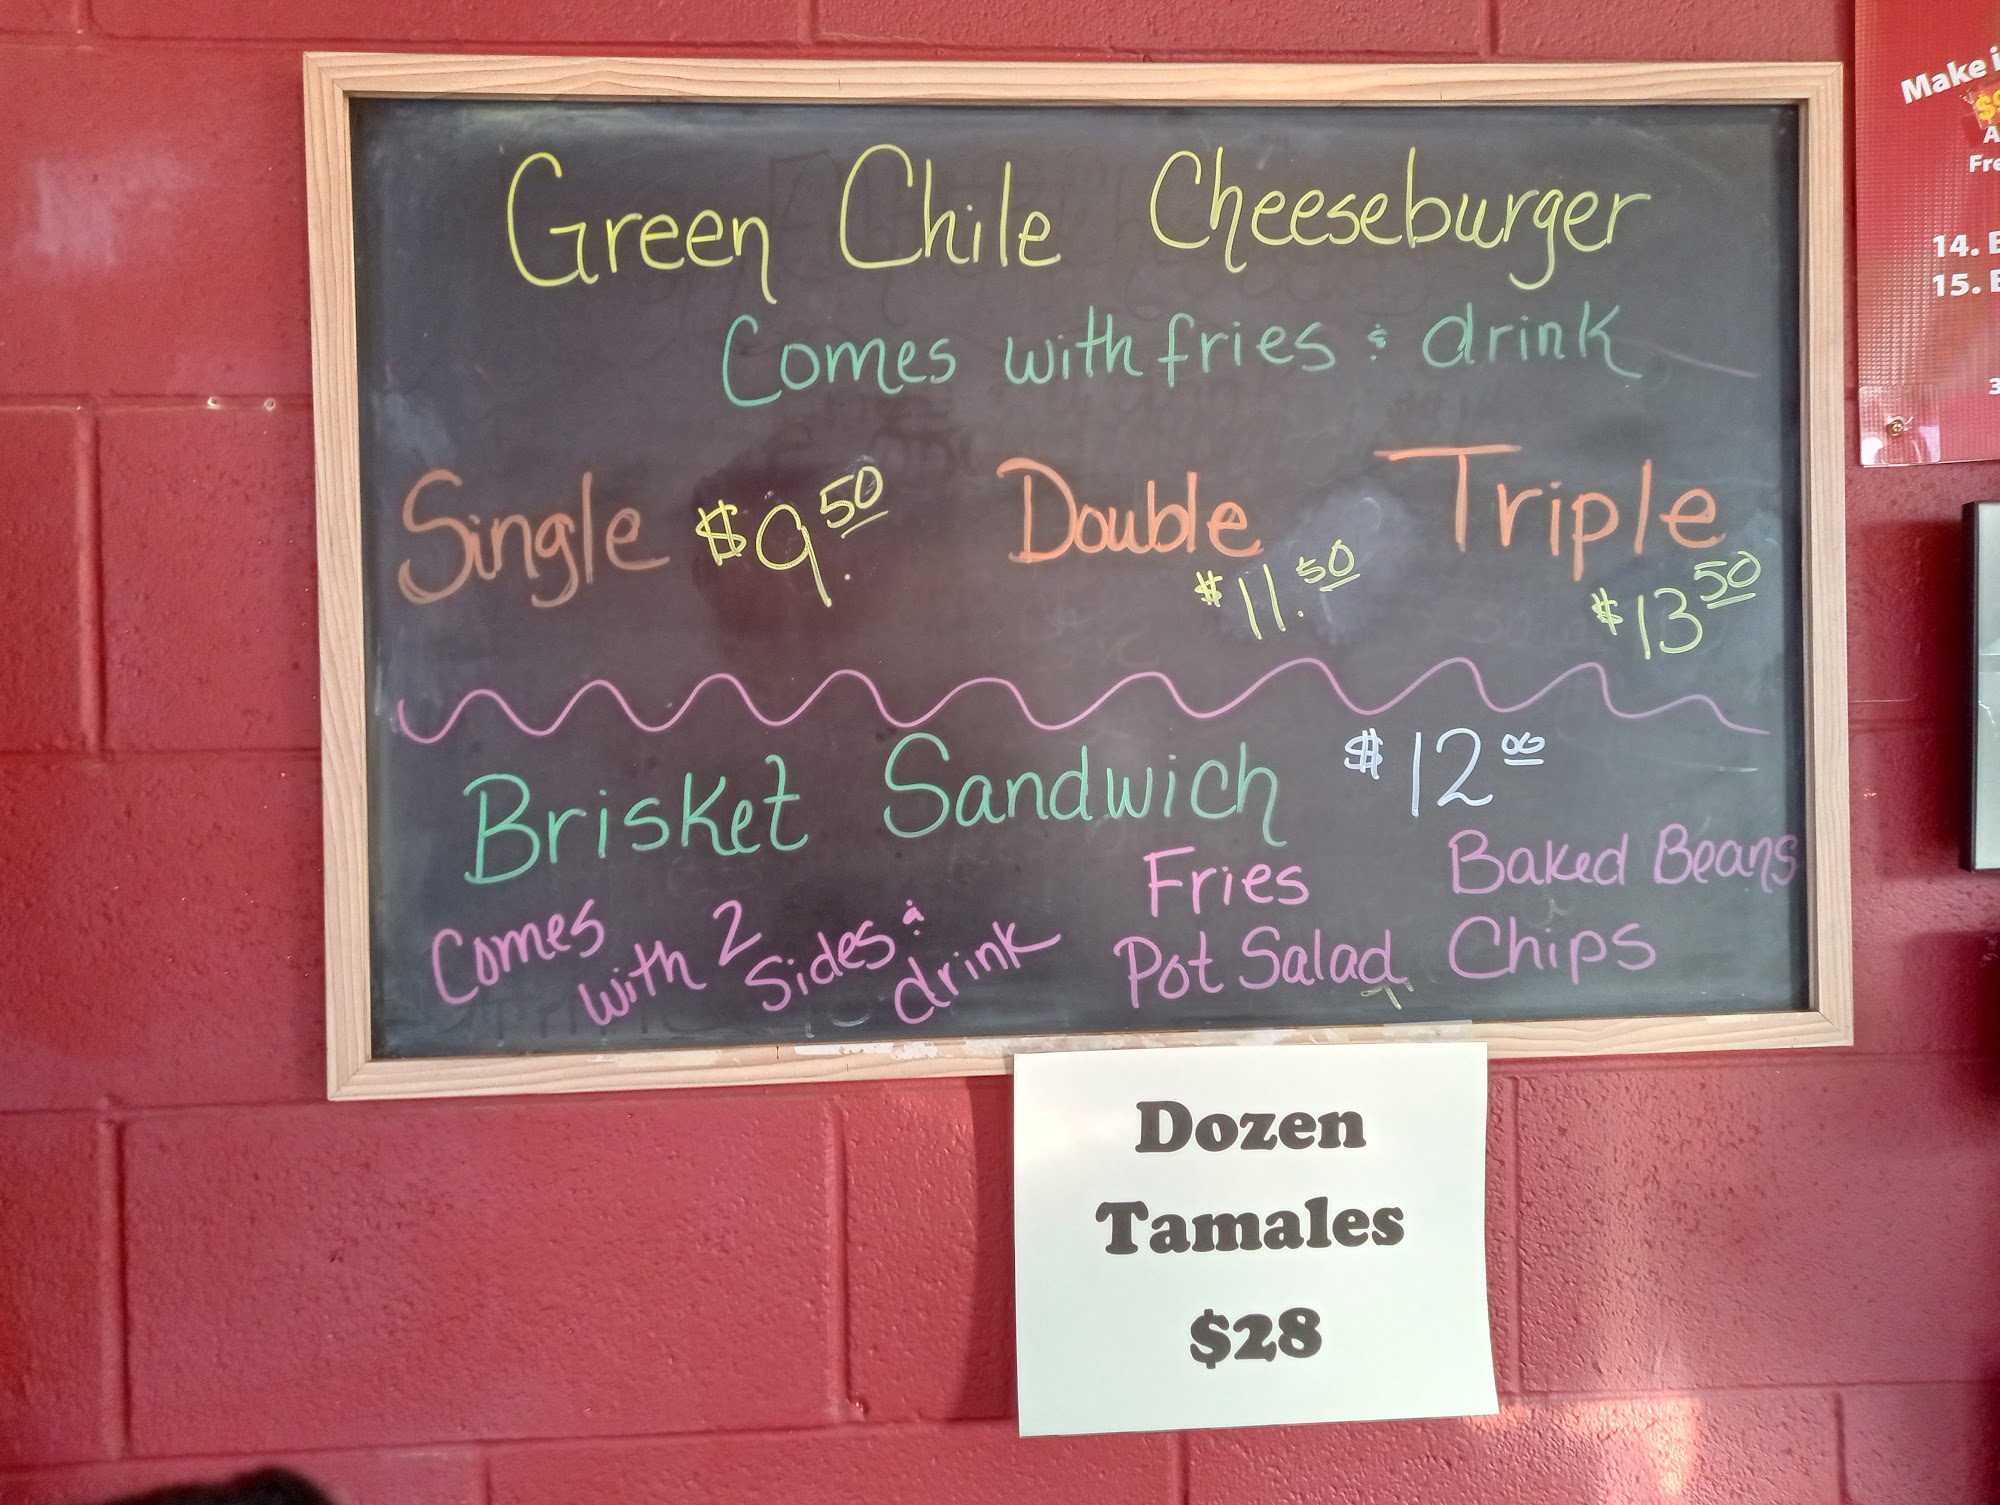 Green Chile Cheeseburger
Comes with fries & drink
Single $9.50 Double $11.50 Triple $13.50
Brisket Sandwich $12.00
Comes with 2 Sides & drink
Fries Baked Beans
Pot Salad Chips
Dozen
Tamales
$28
Make
14.
15.